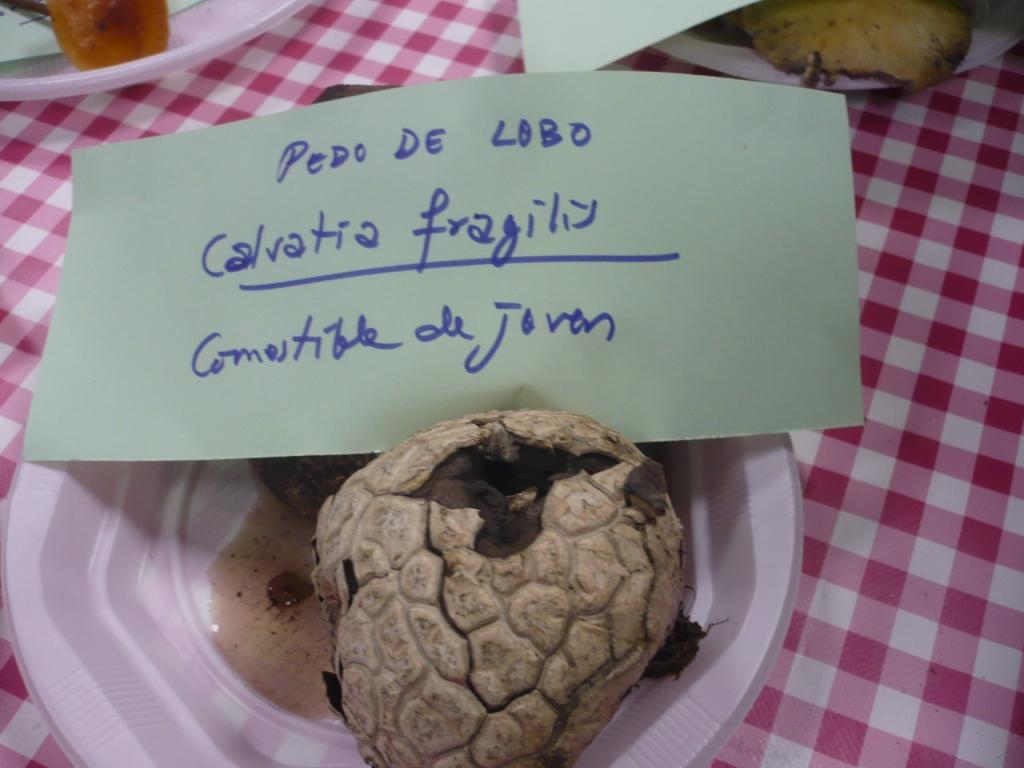 PEDO DE LOBO
Calvatia fragilis
Comestible de joven